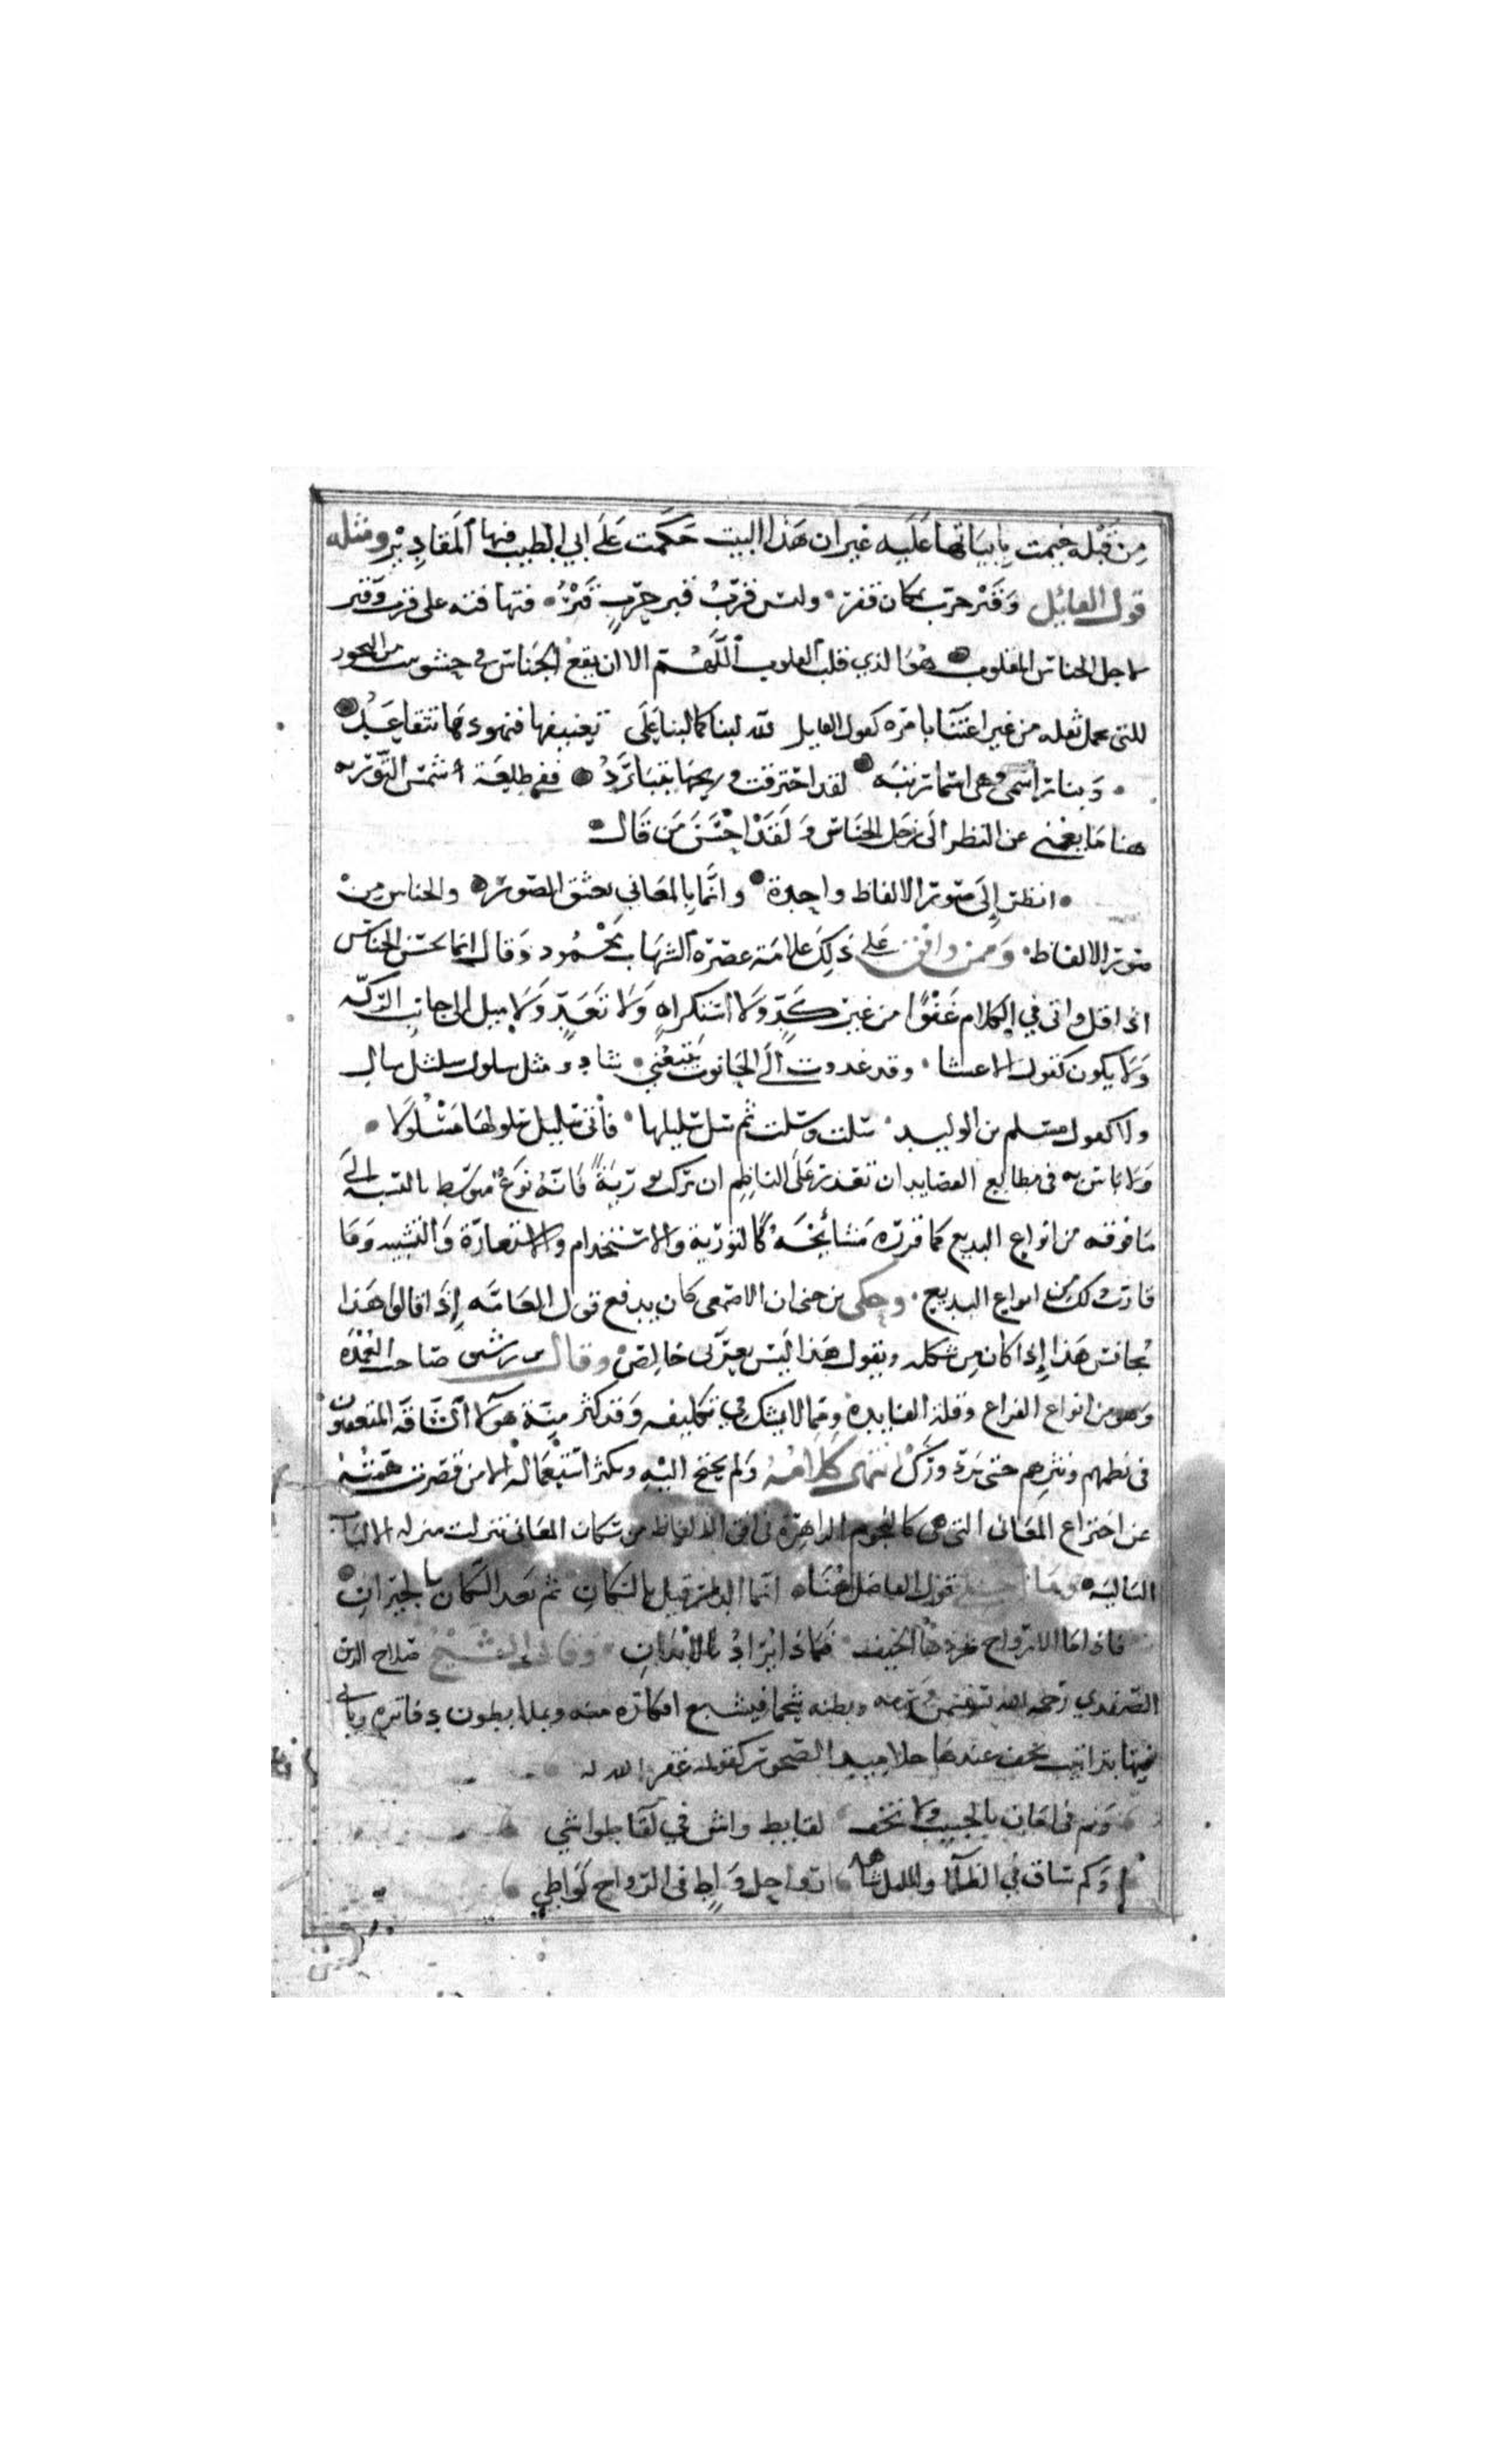 من قبله خيمت بابياتها عليه غير ان هذا البيت حكمت على ابي الطيب فيها المقادير ومثله
قول القائل وقبر حرب بمكان قفر وليس قرب قبر حرب قبر فتهافته على قرب وقبر
لاجل الجناس المقلوب هو الذي قلب القلوب اللهم الا ان يقع الجناس في حشو من البحور
التى تحمل ثقله من غير اعتنا بامره كقول القايل لله لبنا كما لبنا على
لقد احترقت ففي طلعة الشمس
هنا ما يغني عن النظر الى زحل الجناس ولقد احسن من قال
انظر الى صور الالفاظ واحدة وانما بالمعاني تعشق الصور والجناس من
صور الالفاظ وممن وافق على ذلك علامة عصره الشهاب محمود وقال انما يحسن الجناس
اذا قل واتى في الكلام عفوا من غير كد ولا استكراه ولا بعد ولا ميل الى جانب الركه
ولا يكون كقول الاعشا وقد غدوت الى الحانوت يتبعني شاو مثل سلول شلشل
ولا كقول مسلم بن الوليد سلت وسلت ثم سل سليلها فأتى سليل سلولها مسلولا
ولا باس به في مطالع القصايد ان تعذر على الناظم ان تركب تورية فانه نوع متوسط بالنسبة الى
ما فوقه من انواع البديع كما قرره مشائخه كالتورية والاستخدام والاستعارة والتشبيه وما
قارب ذلك من انواع البديع وحكى بن جني ان الاصمعي كان يدفع قول العامه اذا قالوا هذا
يجانس هذا اذا كان من شكله ويقول هذا ليس بعربي خالص وقال بن رشيق صاحب العمدة
وهو من انواع الفراغ وقلة الفايدة ومما لا يشك في تكليفه وقد كثر منه هولآء الساقة المتعقبون
في نظمهم ونثرهم حتى برد ورك انتهى كلامه ولم يحتج اليه ويكثر استعماله الا من قصرت همته
عن اختراع المعانى التى هي كالنجوم الزاهرة في افق الالفاظ من سكان المعانى تنزلت منزلة
البالية وما احسن قول الفاضل هناه انما الدار قبل بالسكان ثم بعد السكان بالجيران
فاذا ما الارواح شردها الحتف فماذا يراد بالابدان وقال الشيخ صلاح الدين
الصفدي رحمه الله وبطنه شحما فيشبع افكاره منه ويملا بطون دفاتره وياتي
فيها بتراكيب تخف عندها جلاميد الصخور كقوله غفر الله له
ونم في امان بالحبيب ولا تخف لقا بط واش في لقا بط واشي
وكم ساق في الظلما والليل شاهد رواحل واط في الرواح لواطي